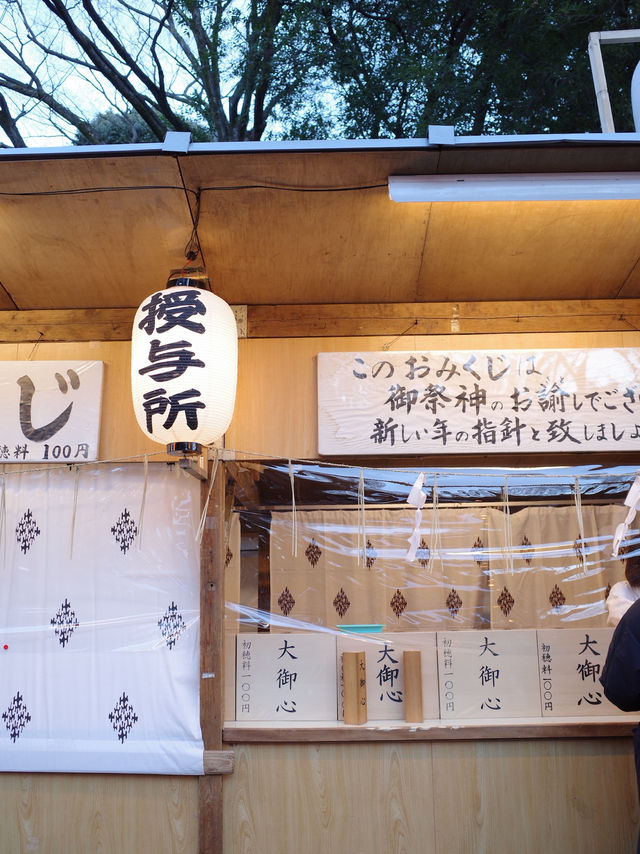 授与所
じ
穂料 100円
このおみくじは
御祭神のお諭しでござ
新しい年の指針と致しましょ
初穂料一〇〇円
大御心
大御心
大御心
初穂料一〇〇円
大御心
初穂料一〇〇円
大御心